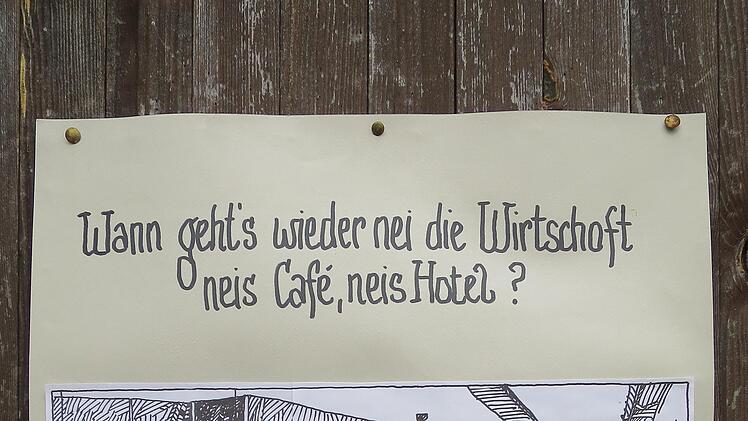 Wann geht's wieder nei die Wirtschoft
neis Café, neis Hotel ?